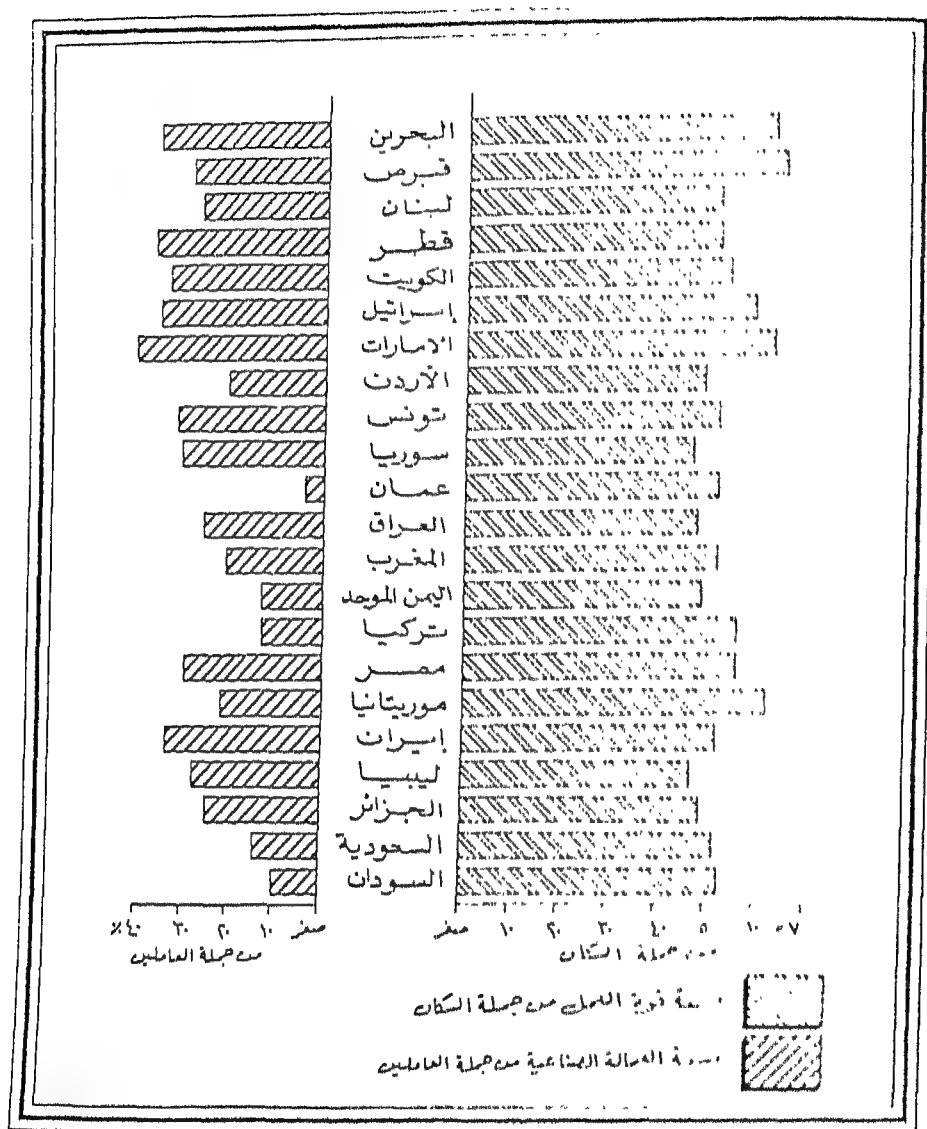 البحرين
قبرص
لبنان
قطر
الكويت
إسرائيل
الامارات
الأردن
تونس
سوريا
عمان
العراق
المغرب
اليمن الموحد
تركيا
مصر
موريتانيا
إيران
ليبيا
الجزائر
السعودية
السودان
٪٤٠ ٣٠ ٢٠ ١٠ صفر
صفر ١٠ ٢٠ ٣٠ ٤٠
من جملة العاملين
من جملة السكان
العمل من جملة السكان
العمالة الصناعية من جملة العاملين